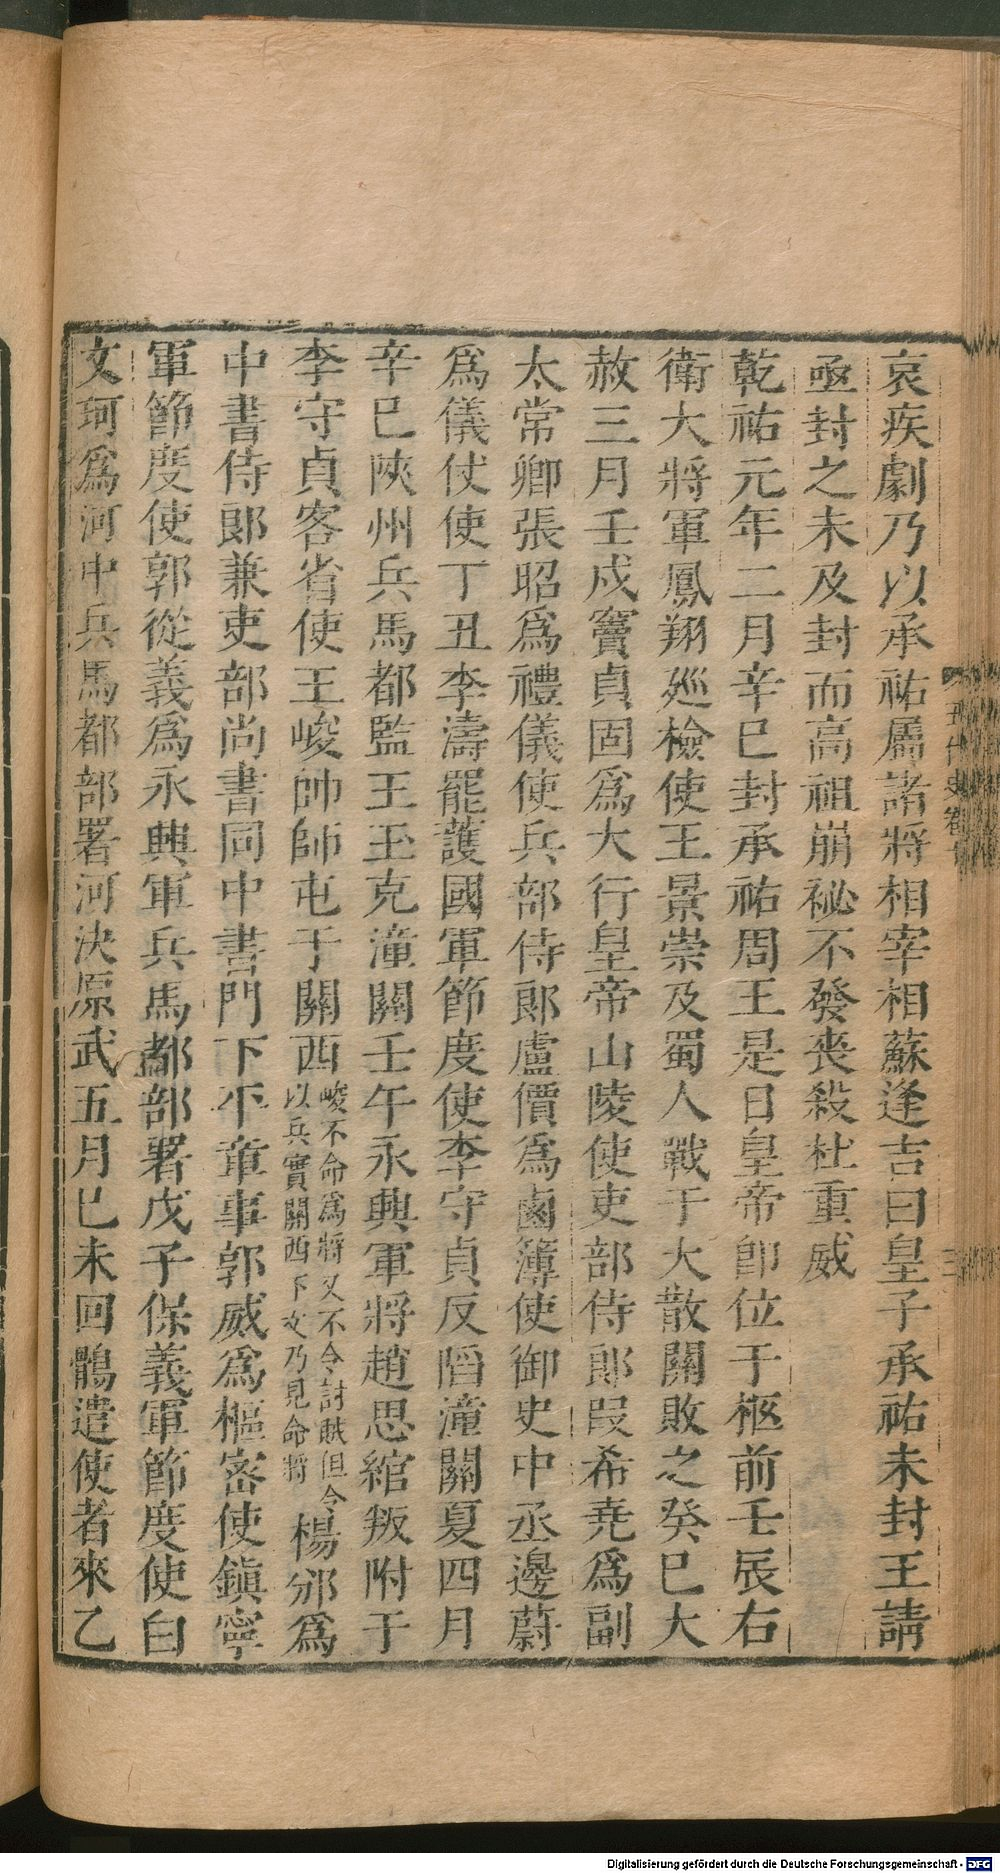 哀疾劇乃以承祐屬諸將相宰相蘇逢吉曰皇子承祐未封王請
亟封之未及封而高祖崩祕不發喪殺杜重威
乾祐元年二月辛巳封承祐周王是日皇帝即位于柩前壬辰右
衛大將軍鳳翔廵檢使王景崇及蜀人戰于大散關敗之癸巳大
赦三月壬戍竇貞固爲大行皇帝山陵使吏部侍郎段希堯爲副
太常卿張昭爲禮儀使兵部侍郎盧價爲鹵簿使御史中丞邊蔚
爲儀仗使丁丑李濤罷護國軍節度使李守貞反陷潼關夏四月
辛巳陝州兵馬都監王玉克潼關壬午永興軍將趙思綰叛附于
李守貞客省使王峻帥師屯于關西峻不命爲將又不令討賊但令以兵實關西下文乃見命將楊邠爲
中書侍郎兼吏部尚書同中書門下平章事郭威爲樞密使鎭寧
軍節度使郭從義爲永興軍兵馬都部署戊子保義軍節度使白
文珂爲河中兵馬都部署河決原武五月己未回鶻遣使者來乙
五代史卷十
三
Digitalisierung gefördert durch die Deutsche Forschungsgemeinschaft - DFG